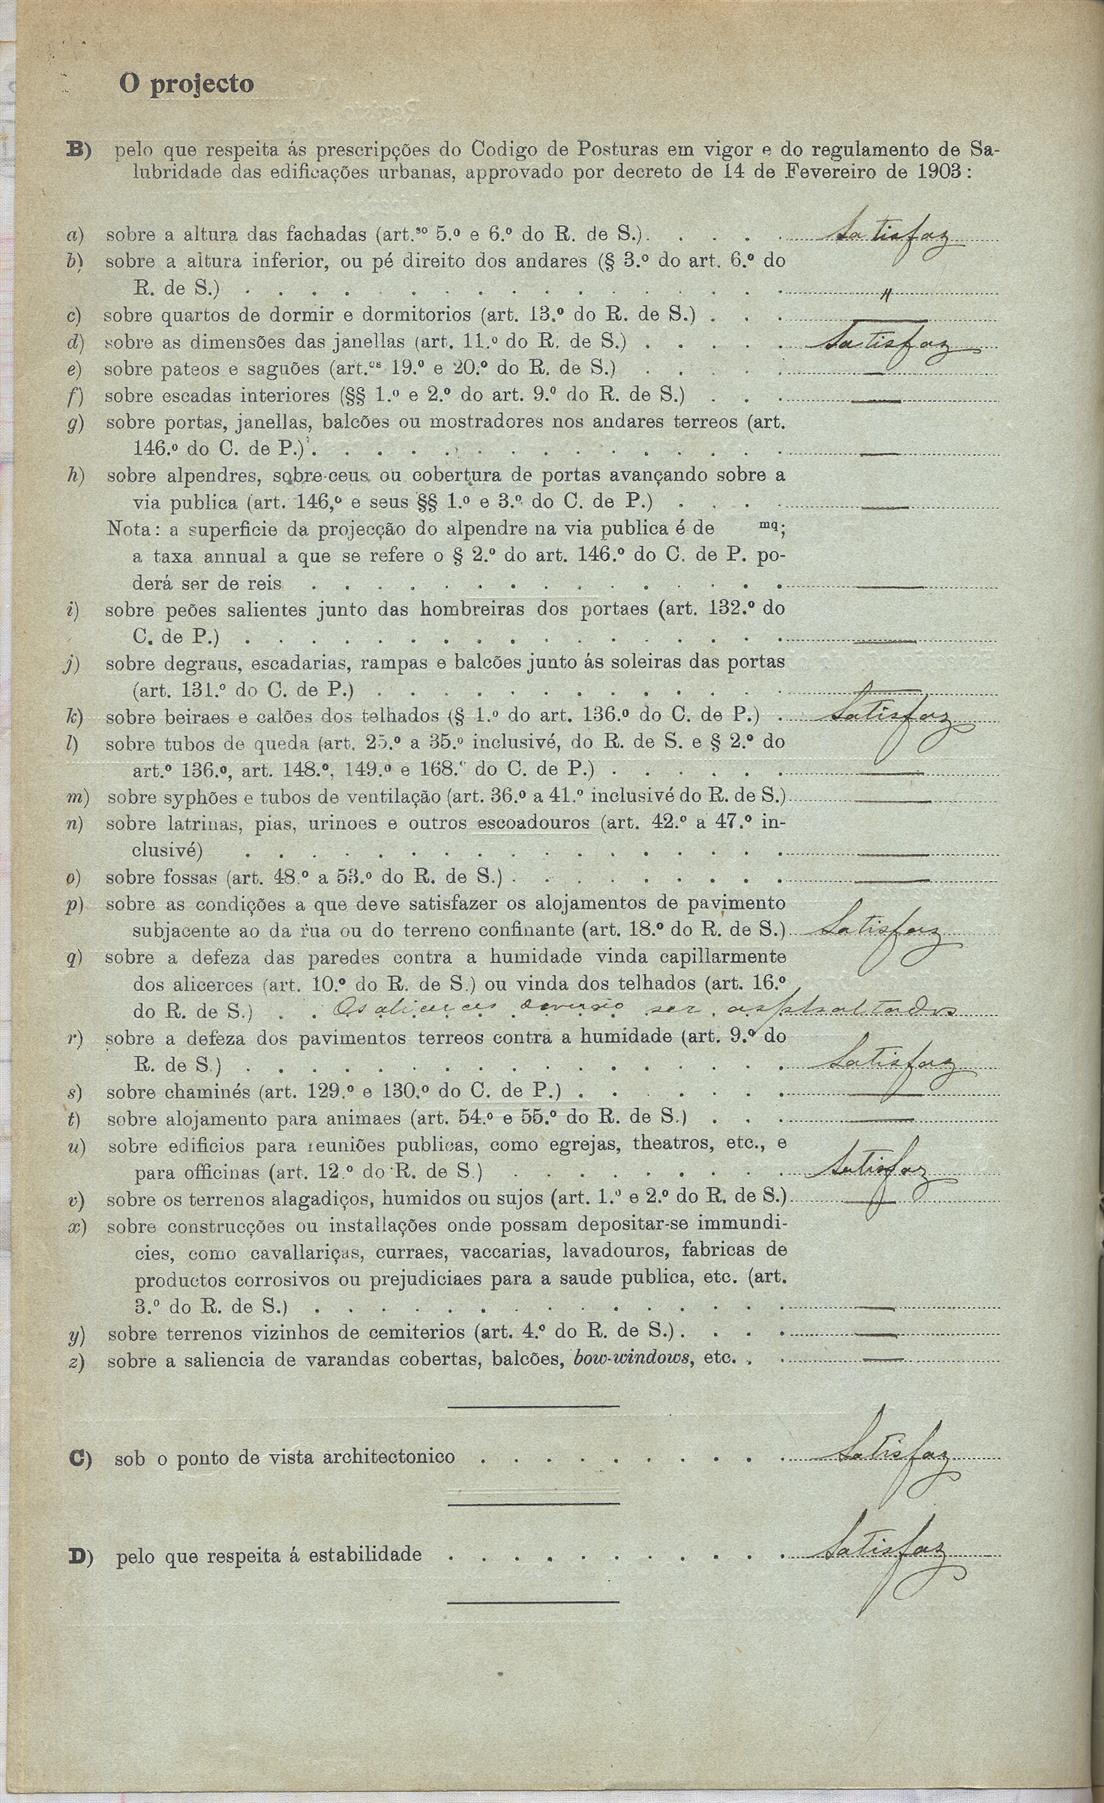 O projecto
B) pelo que respeita ás prescripções do Codigo de Posturas em vigor e do regulamento de Sa-
lubridade das edificações urbanas, approvado por decreto de 14 de Fevereiro de 1903:
a) sobre a altura das fachadas (art.ºº 5.º e 6.º do R. de S.). . . . . Satisfaz
b) sobre a altura inferior, ou pé direito dos andares (§ 3.º do art. 6.º do
R. de S.) . . . . . . . . . . . . . . . . . "
c) sobre quartos de dormir e dormitorios (art. 13.º do R. de S.) . . . —
d) sobre as dimensões das janellas (art. 11.º do R. de S.) . . . . . Satisfaz
e) sobre pateos e saguões (art.os 19.º e 20.º do R. de S.) . . . . . —
f) sobre escadas interiores (§§ 1.º e 2.º do art. 9.º do R. de S.) . . . —
g) sobre portas, janellas, balcões ou mostradores nos andares terreos (art.
146.º do C. de P.). . . . . . . . . . . . . . . —
h) sobre alpendres, sobre-ceus ou cobertura de portas avançando sobre a
via publica (art. 146,º e seus §§ 1.º e 3.º do C. de P.) . . . . —
Nota: a superficie da projecção do alpendre na via publica é de mq;
a taxa annual a que se refere o § 2.º do art. 146.º do C. de P. po-
derá ser de reis . . . . . . . . . . . . . . . —
i) sobre peões salientes junto das hombreiras dos portaes (art. 132.º do
C. de P.) . . . . . . . . . . . . . . . . . —
j) sobre degraus, escadarias, rampas e balcões junto ás soleiras das portas
(art. 131.º do C. de P.) . . . . . . . . . . . . . —
k) sobre beiraes e calões dos telhados (§ 1.º do art. 136.º do C. de P.) . Satisfaz
l) sobre tubos de queda (art. 25.º a 35.º inclusivé, do R. de S. e § 2.º do
art.º 136.º, art. 148.º, 149.º e 168.º do C. de P.) . . . . . . —
m) sobre syphões e tubos de ventilação (art. 36.º a 41.º inclusivé do R. de S.) —
n) sobre latrinas, pias, urinoes e outros escoadouros (art. 42.º a 47.º in-
clusivé) . . . . . . . . . . . . . . . . . —
o) sobre fossas (art. 48.º a 53.º do R. de S.) . . . . . . . . . —
p) sobre as condições a que deve satisfazer os alojamentos de pavimento
subjacente ao da rua ou do terreno confinante (art. 18.º do R. de S.) Satisfaz
q) sobre a defeza das paredes contra a humidade vinda capillarmente
dos alicerces (art. 10.º do R. de S.) ou vinda dos telhados (art. 16.º
do R. de S.) . . Os alicerces deverão ser asphaltados
r) sobre a defeza dos pavimentos terreos contra a humidade (art. 9.º do
R. de S.) . . . . . . . . . . . . . . . . . Satisfaz
s) sobre chaminés (art. 129.º e 130.º do C. de P.) . . . . . . . —
t) sobre alojamento para animaes (art. 54.º e 55.º do R. de S.) . . . —
u) sobre edificios para reuniões publicas, como egrejas, theatros, etc., e
para officinas (art. 12.º do R. de S.) . . . . . . . . . Satisfaz
v) sobre os terrenos alagadiços, humidos ou sujos (art. 1.º e 2.º do R. de S.) —
x) sobre construcções ou installações onde possam depositar-se immundi-
cies, como cavallariças, curraes, vaccarias, lavadouros, fabricas de
productos corrosivos ou prejudiciaes para a saude publica, etc. (art.
3.º do R. de S.) . . . . . . . . . . . . . . . —
y) sobre terrenos vizinhos de cemiterios (art. 4.º do R. de S.). . . . —
z) sobre a saliencia de varandas cobertas, balcões, bow-windows, etc. . . —
C) sob o ponto de vista architectonico . . . . . . . . . . Satisfaz
D) pelo que respeita á estabilidade . . . . . . . . . . . Satisfaz